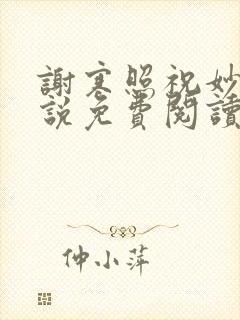 謝寒照祝妙
說免費閱讀
仲小萍